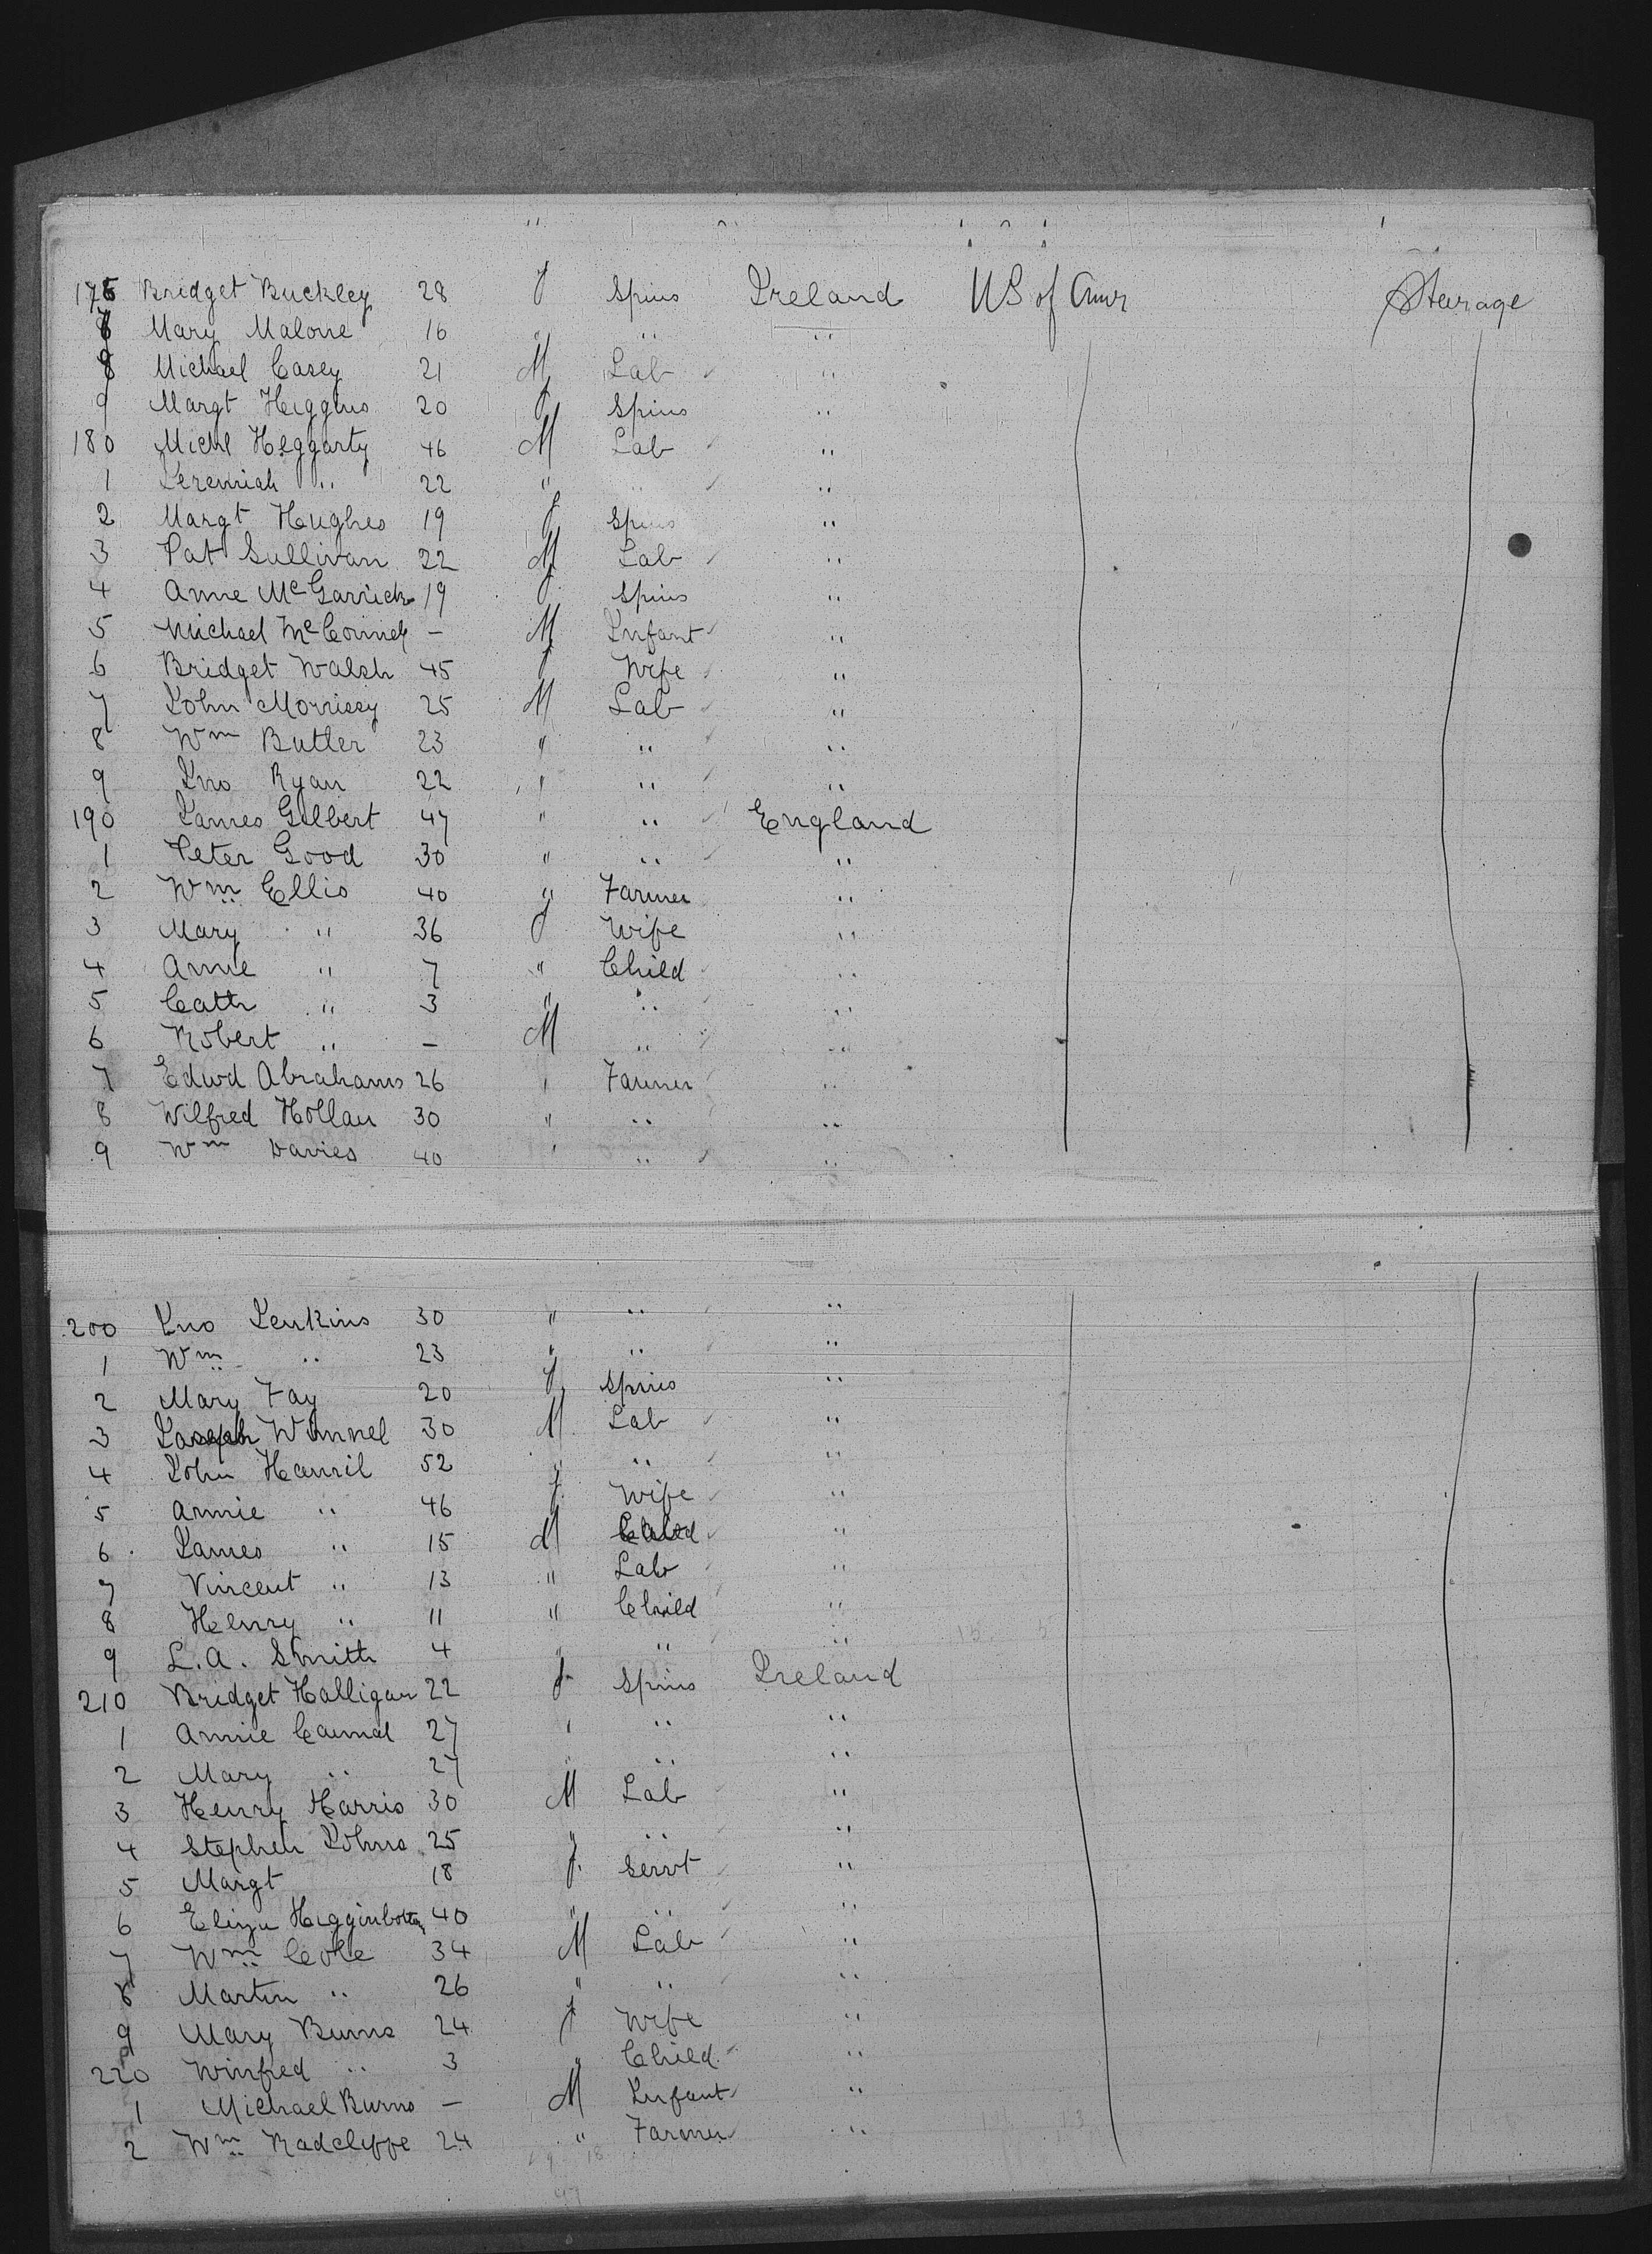 176 Bridget Buckley 28 f Spins Ireland US of Amr Stearage
7 Mary Malone 16 " " "
8 Michael Casey 21 M Lab "
9 Margt Higgins 20 f Spins "
180 Michl Heggarty 46 M Lab "
1 Jeremiah " 22 " " "
2 Margt Hughes 19 f Spins "
3 Pat Sullivan 22 M Lab "
4 Anne McGarrick 19 f Spins "
5 Michael — M Infant "
6 Bridget Walsh 45 f Wife "
7 John Morrissy 25 M Lab "
8 Wm Butler 23 " " "
9 Jno Ryan 22 " " "
190 James Gilbert 47 " " England
1 Peter Good 30 " " "
2 Wm Ellis 40 " Farmer "
3 Mary " 36 f Wife "
4 Annie " 7 " Child "
5 Cath " 3 " " "
6 Robert " — M " "
7 Edwd Abrahams 26 " Farmer "
8 Wilfred Hollan 30 " " "
9 Wm Davies 40 " " "
200 Jno Jenkins 30 " " "
1 Wm " 23 " " "
2 Mary Fay 20 f Spins "
3 Joseph Winnel 30 M Lab "
4 John Hamril 52 " " "
5 Annie " 46 f Wife "
6 James " 15 M "
7 Vincent " 13 " Lab "
8 Henry " 11 " Child "
9 L.A. Smith 4 " " "
210 Bridget Halligan 22 f Spins Ireland
1 Annie 27 " " "
2 Mary " 27 " " "
3 Henry Harris 30 M Lab "
4 Stephen Johns 25 " " "
5 Margt 18 f Servt "
6 Eliza Higginbottm 40 " " "
7 Wm Cole 34 M Lab "
8 Martin " 26 " " "
9 Mary Burns 24 f Wife "
220 Winfred " 3 " Child "
1 Michael Burns — M Infant "
2 Wm Radcliffe 24 " Farmer "